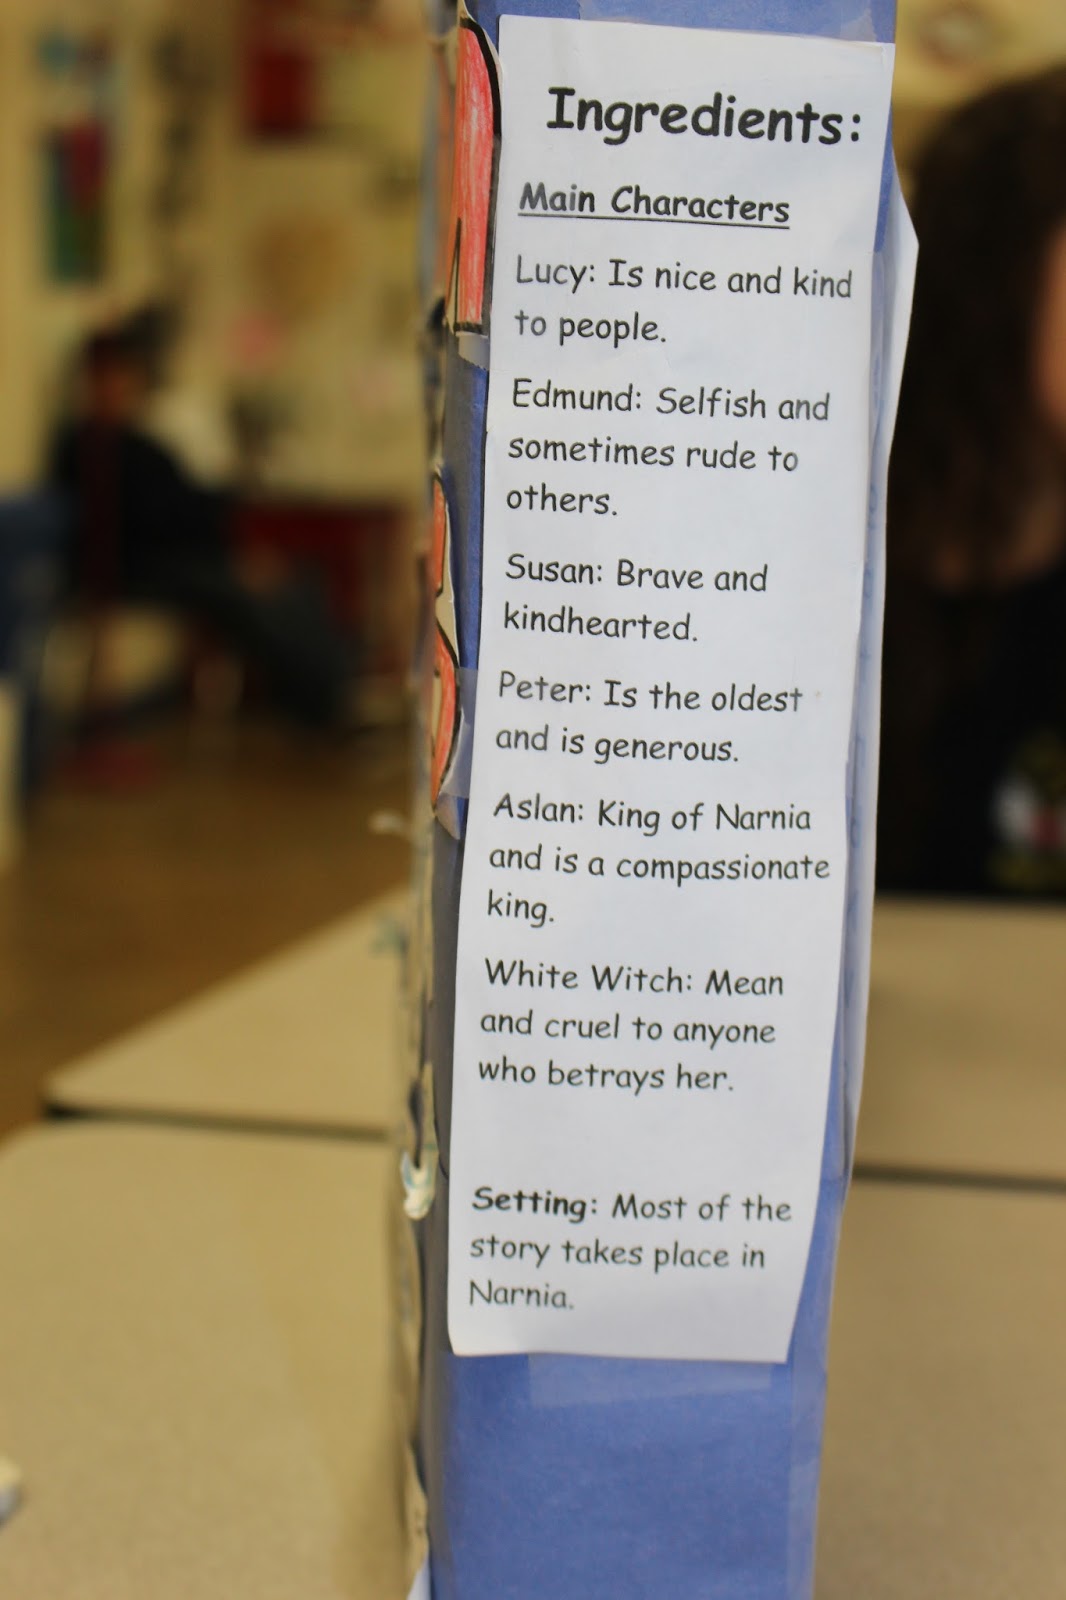 Ingredients:
Main Characters
Lucy: Is nice and kind
to people.
Edmund: Selfish and
sometimes rude to
others.
Susan: Brave and
kindhearted.
Peter: Is the oldest
and is generous.
Aslan: King of Narnia
and is a compassionate
king.
White Witch: Mean
and cruel to anyone
who betrays her.
Setting: Most of the
story takes place in
Narnia.